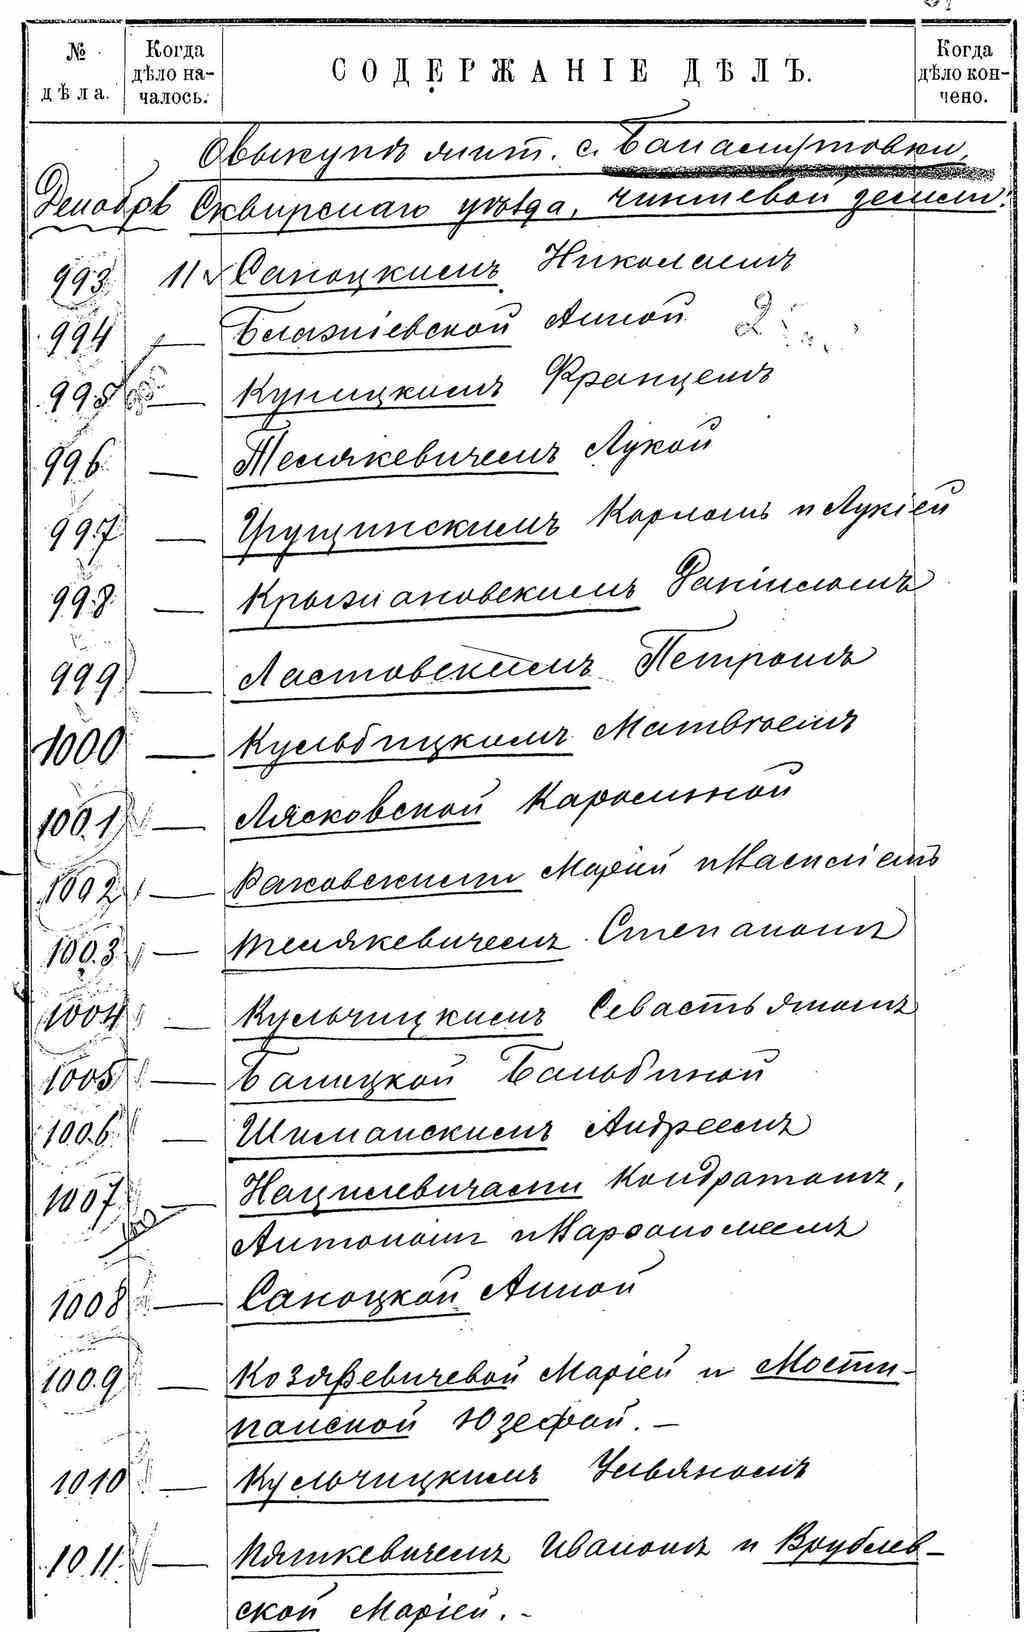 № дѣла.
Когда дѣло началось.
СОДЕРЖАНІЕ ДѢЛЪ.
Когда дѣло кончено.
О выкупѣ жит. с.
Декабрь Сквирскаго уѣзда, чиншевой
993 11 Саноцкимъ Николаемъ
994 — Блажіевской Анной
995 — Куницкимъ Францемъ
996 — Телякевичемъ Лукой
997 — Грущинскимъ Карломъ и Лукіей
998 — Крыжановскимъ
999 — Ластовскимъ Петромъ
1000 — Кульбицкимъ Матвѣемъ
1001 — Лясковской Каролиной
1002 — Раковскими Маріей и
1003 — Телякевичемъ Степаномъ
1004 — Кульчицкимъ Севастьяномъ
1005 — Балицкой Бальбиной
1006 — Шиманскимъ Андреемъ
1007 — Нацилевичами Кондратомъ,
Антономъ и
1008 — Саноцкой Анной
1009 — Маріей и Мости-
панской Юзефой. —
1010 — Кульчицкимъ Ульяномъ
1011 — Пяткевичемъ Иваномъ и Врублев-
ской Маріей. -